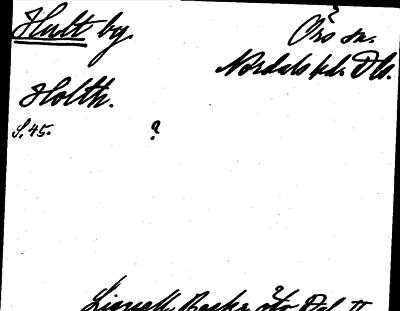 Hult by.
Örs sn.
Nordals hd. Dls.
Holth.
S. 45. ?
Lignell, Beskr. öfv. Dal II